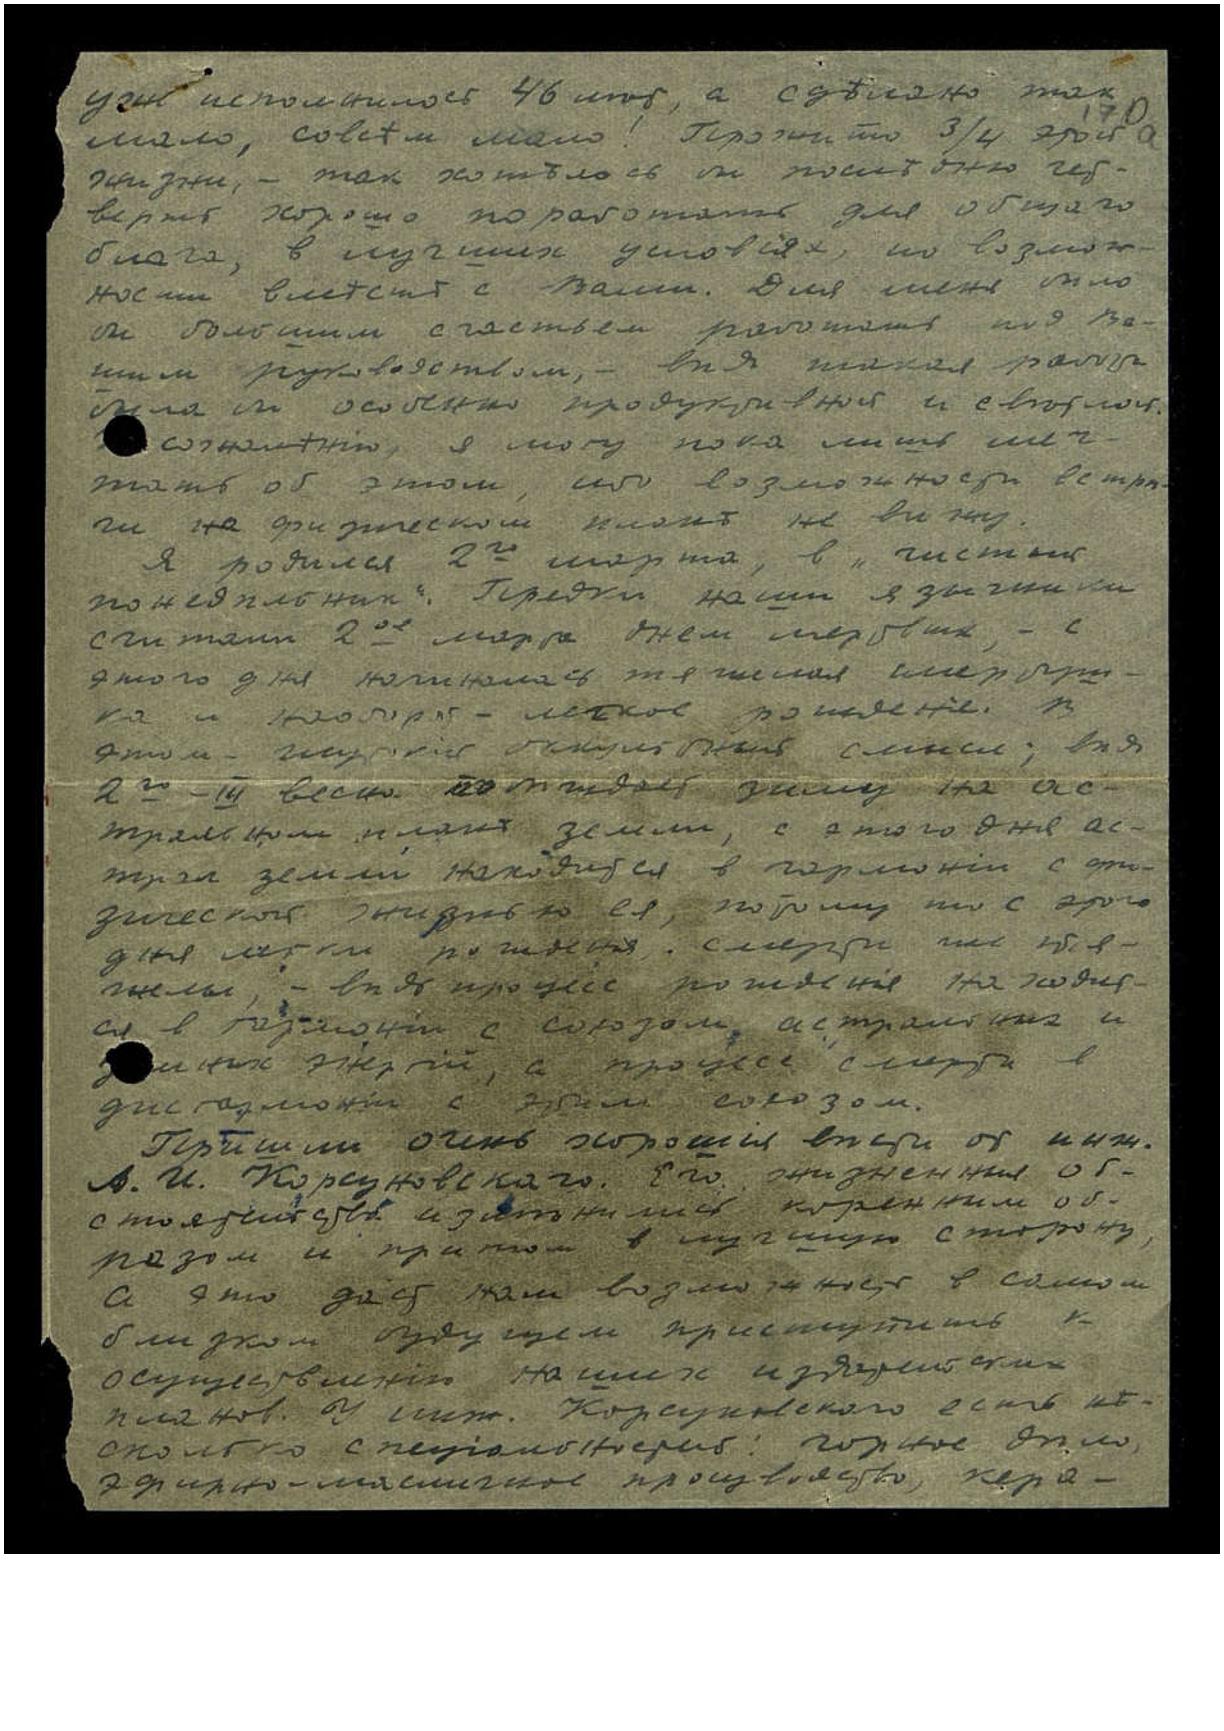 уже исполнилось 46 лѣт, а сдѣлано так
мало, совсѣм мало! Прожито 3/4 этой
жизни, – так хотѣлось бы послѣднюю чет-
верть хорошо поработать для общаго
блага, в лучших условіях, по возмож-
ности вмѣстѣ с Вами. Для меня было
бы большим счастьем работать под Ва-
шим руководством, – вѣдь такая работа
была бы особенно продуктивной и свѣтлой.
сожалѣнію, я могу пока лишь меч-
тать об этом, ибо возможности встрѣ-
чи на физическом планѣ не вижу.
Я родился 2го марта, в „чистый
понедѣльник“. Предки наши язычники
считали 2ое марта днем мертвых, – с
этого дня начиналась тяжелая смерть
и наоборот – легкое рожденіе. В
этом – глубокій оккультный смысл; вѣдь
2го – III весна побѣждает зиму на ас-
тральном планѣ земли, с этого дня ас-
трал земли находится в гармоніи с фи-
зической жизнью ея, потому то с этого
дня легки рожденія. Смерти же тя-
желы, – вѣдь процесс рожденія находит-
ся в гармоніи с союзом астральных и
энергій, а процесс смерти в
дисгармоніи с этим союзом.
Пришли очень хорошія вѣсти от инж.
А. И. Корсуновскаго. Его жизненныя об-
стоятельства измѣнились коренным об-
разом и притом в лучшую сторону,
а это даст нам возможность в самом
близком будущем приступить к
осуществленію наших издательских
планов. У инж. Корсуновского есть нѣ-
сколько спеціальностей: горное дѣло,
эфирно-масличное производство, кера-
170
а